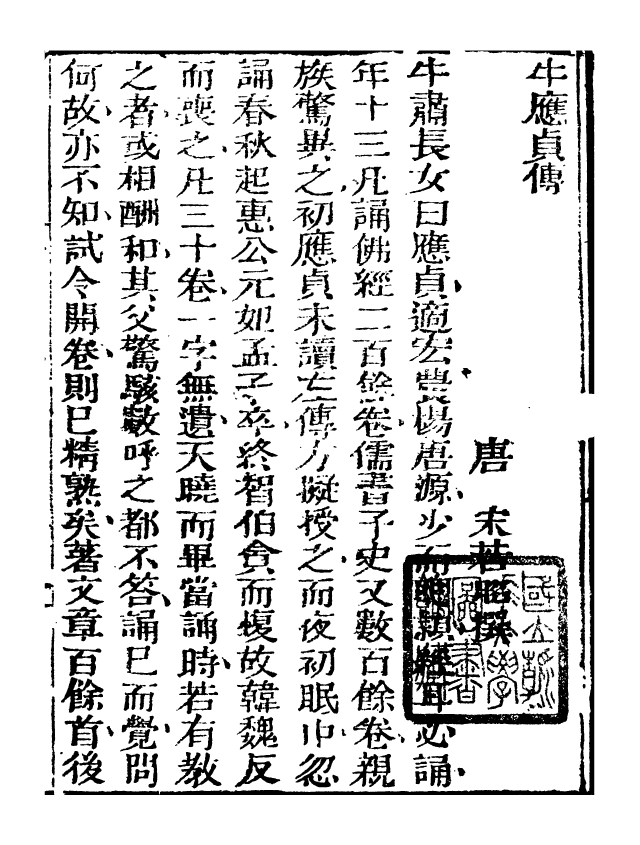 牛應貞傳
唐 宋若昭撰
牛肅長女曰應貞適宏農楊唐源少而聰穎經耳必誦
年十三凡誦佛經二百餘卷儒書子史又數百餘卷親
族驚異之初應貞未讀左傳方擬授之而夜初眠中忽
誦春秋起惠公元妃孟子卒終智伯貪而愎故韓魏反
而喪之凡三十卷一字無遺天曉而畢當誦時若有教
之者或相酬和其父驚駭數呼之都不答誦已而覺問
何故亦不知試令開卷則已精熟矣著文章百餘首後